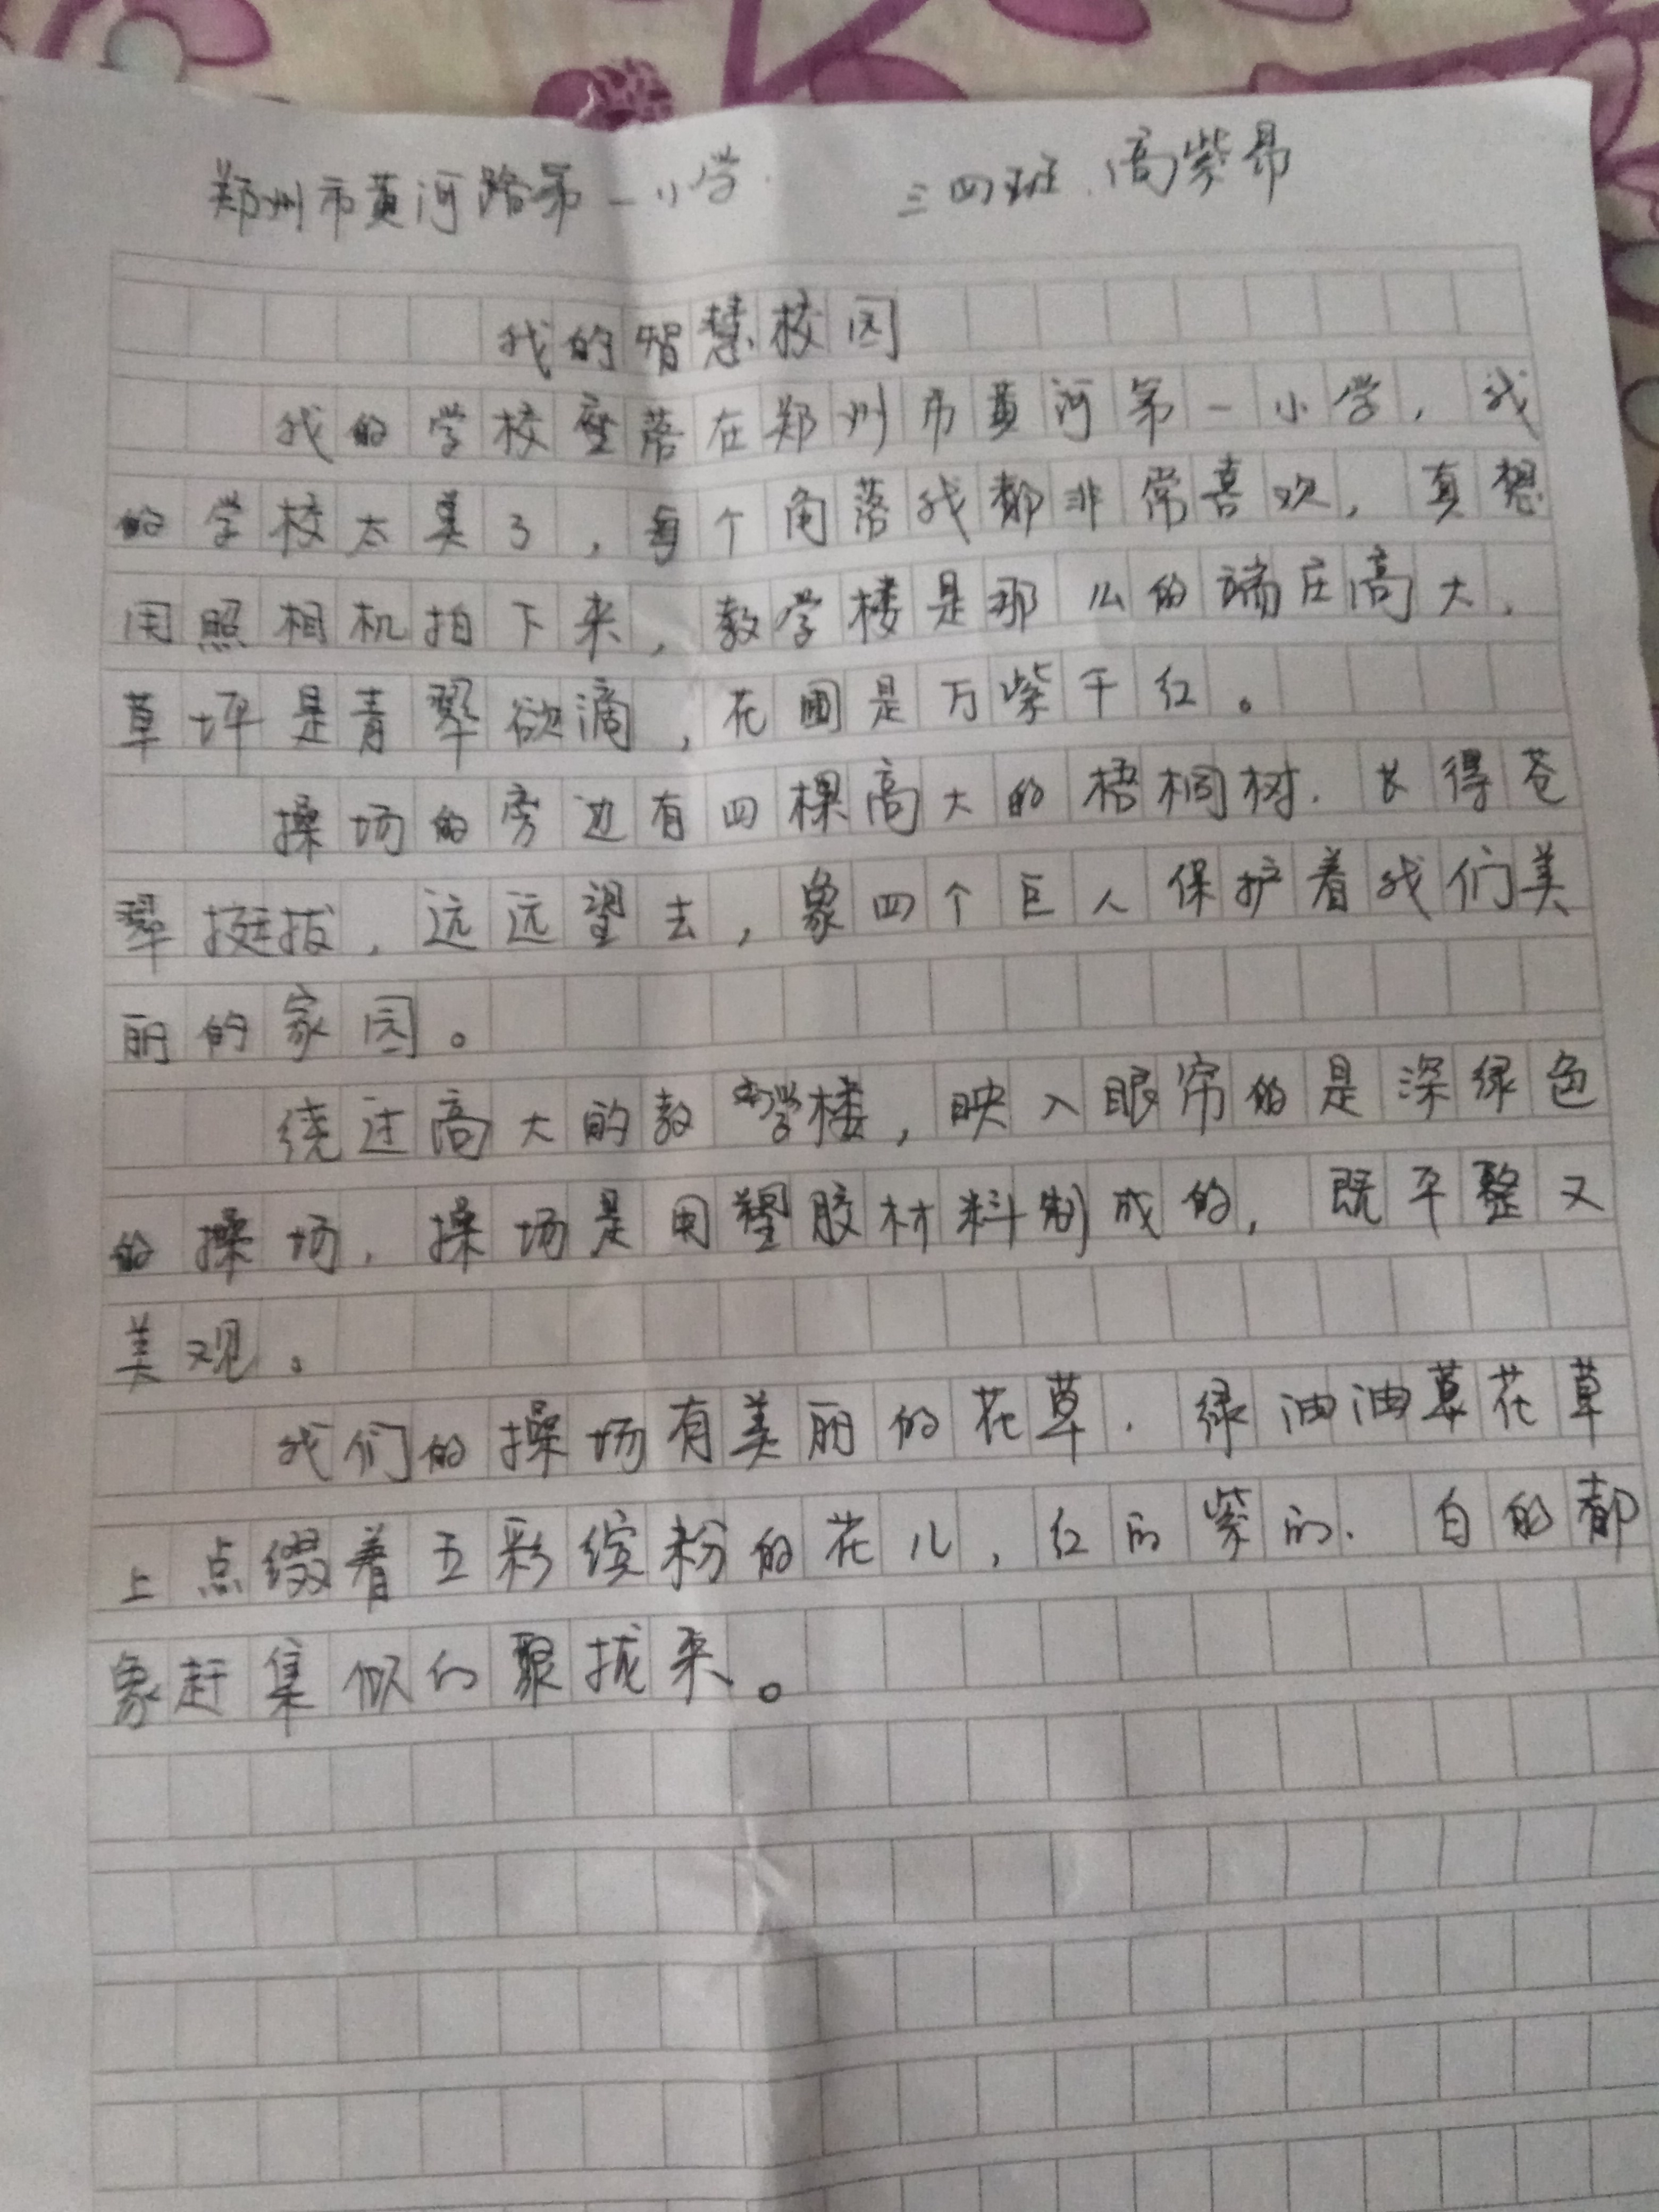 郑州市黄河路第一小学 三四班 高紫昂
我的智慧校园
我的学校座落在郑州市黄河第一小学，我
的学校太美了，每个角落我都非常喜欢，真想
用照相机拍下来，教学楼是那么的端庄高大，
草坪是青翠欲滴，花圃是万紫千红。
操场的旁边有四棵高大的梧桐树，长得苍
翠挺拔，远远望去，象四个巨人保护着我们美
丽的家园。
绕过高大的教学楼，映入眼帘的是深绿色
的操场，操场是用塑胶材料制成的，既平整又
美观。
我们的操场有美丽的花草，绿油油草花草
上点缀着五彩缤粉的花儿，红的紫的、白的都
象赶集似的聚拢来。